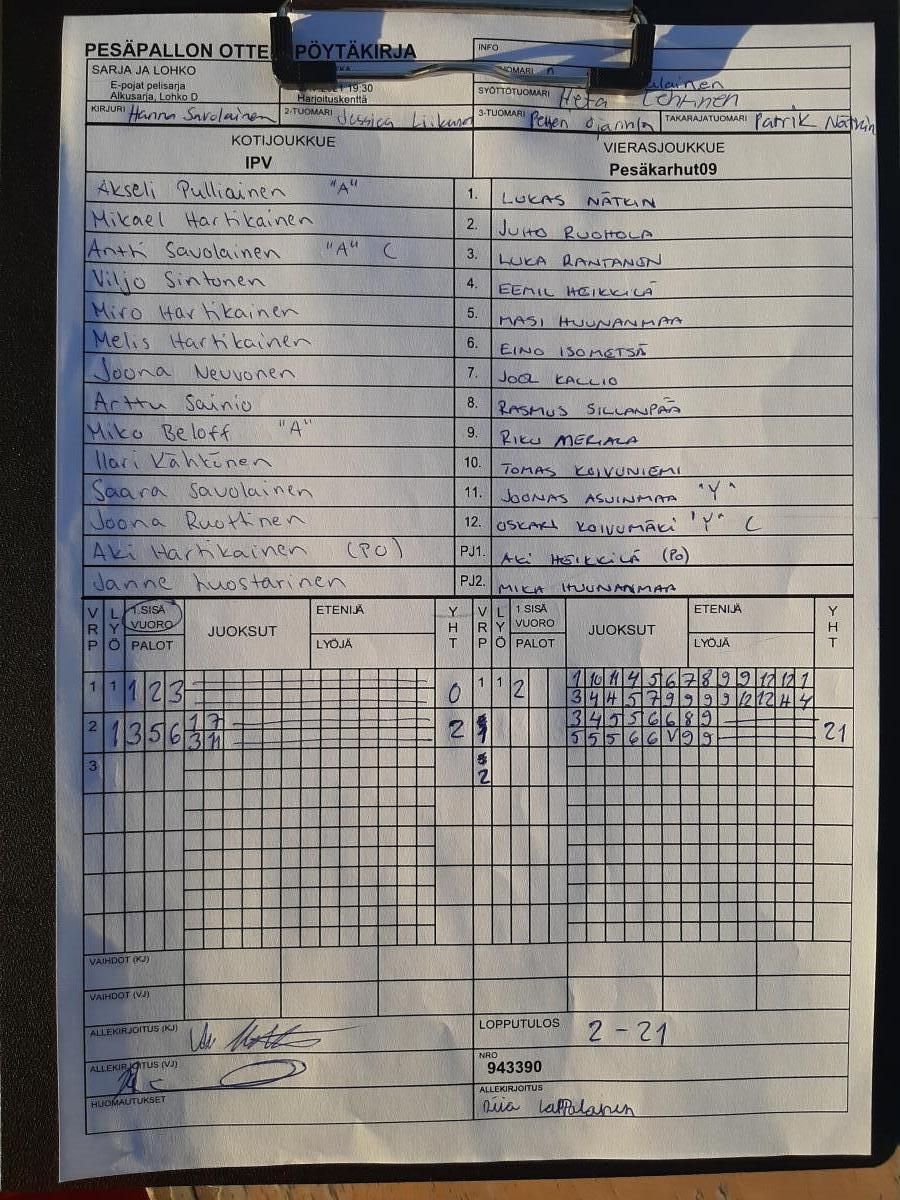 PESÄPALLON OTTE PÖYTÄKIRJA
INFO
SARJA JA LOHKO
E-pojat pelisarja
Alkusarja, Lohko D
2021 19:30
Harjoituskenttä
SYÖTTÖTUOMARI Heta Lehtinen
KIRJURI Hanna Savolainen
2-TUOMARI Jessica
3-TUOMARI
TAKARAJATUOMARI Patrik Nätkin
KOTIJOUKKUE
IPV
VIERASJOUKKUE
Pesäkarhut09
Akseli Pulliainen "A" 1. LUKAS NÄTKIN
Mikael Hartikainen 2. JUHO RUOHOLA
Antti Savolainen "A" C 3. LUKA RANTANEN
Viljo Sintonen 4. EEMIL HEIKKILÄ
Miro Hartikainen 5. MASI HUUNANMAA
Melis Hartikainen 6. EINO ISOMETSÄ
Joona Neuvonen 7. JOEL KALLIO
Arttu Sainio 8. RASMUS SILLANPÄÄ
Miko Beloff "A" 9. RIKU MERIALA
Ilari Kähkönen 10. TOMAS KOIVUNIEMI
Saara Savolainen 11. JOONAS ASUINMAA "Y"
Joona Ruottinen 12. OSKARI KOIVUMÄKI "Y" C
Aki Hartikainen (PO) PJ1. AKI HEIKKILÄ (Po)
Janne Luostarinen PJ2. MIKA HUUNANMAA
VRP LYÖ 1.SISÄ VUORO PALOT JUOKSUT ETENIJÄ LYÖJÄ YHT VRP LYÖ 1.SISÄ VUORO PALOT JUOKSUT ETENIJÄ LYÖJÄ YHT
1 1 1 2 3 0 1 1 2 1 10 11 4 5 6 7 8 9 9 12 12 1
3 4 4 5 7 9 9 9 9 12 12 4 4
2 1 3 5 6 1 7 2 1 3 4 5 5 6 6 8 9 21
3 11 5 5 5 6 6 V 9 9
3 2
VAIHDOT (KJ)
VAIHDOT (VJ)
ALLEKIRJOITUS (KJ)
LOPPUTULOS 2 - 21
ALLEKIRJOITUS (VJ)
NRO
943390
HUOMAUTUKSET
ALLEKIRJOITUS
Riia Lappalainen